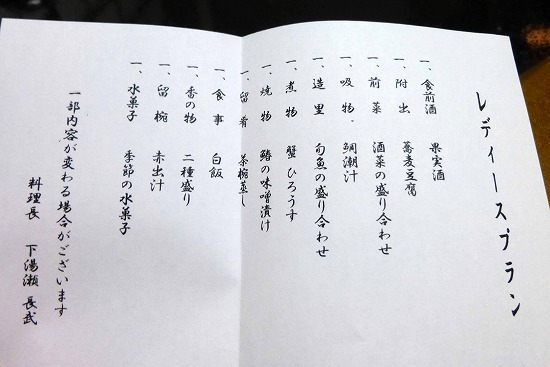 レディースプラン
一、食前酒　果実酒
一、附出　蕎麦豆腐
一、前菜　酒菜の盛り合わせ
一、吸物　鯛潮汁
一、造里　旬魚の盛り合わせ
一、煮物　蟹ひろうす
一、焼物　鰆の味噌漬け
一、留肴　茶椀蒸し
一、食事　白飯
一、香の物　二種盛り
一、留椀　赤出汁
一、水菓子　季節の水菓子
一部内容が変わる場合がございます
料理長　下湯瀬　長武